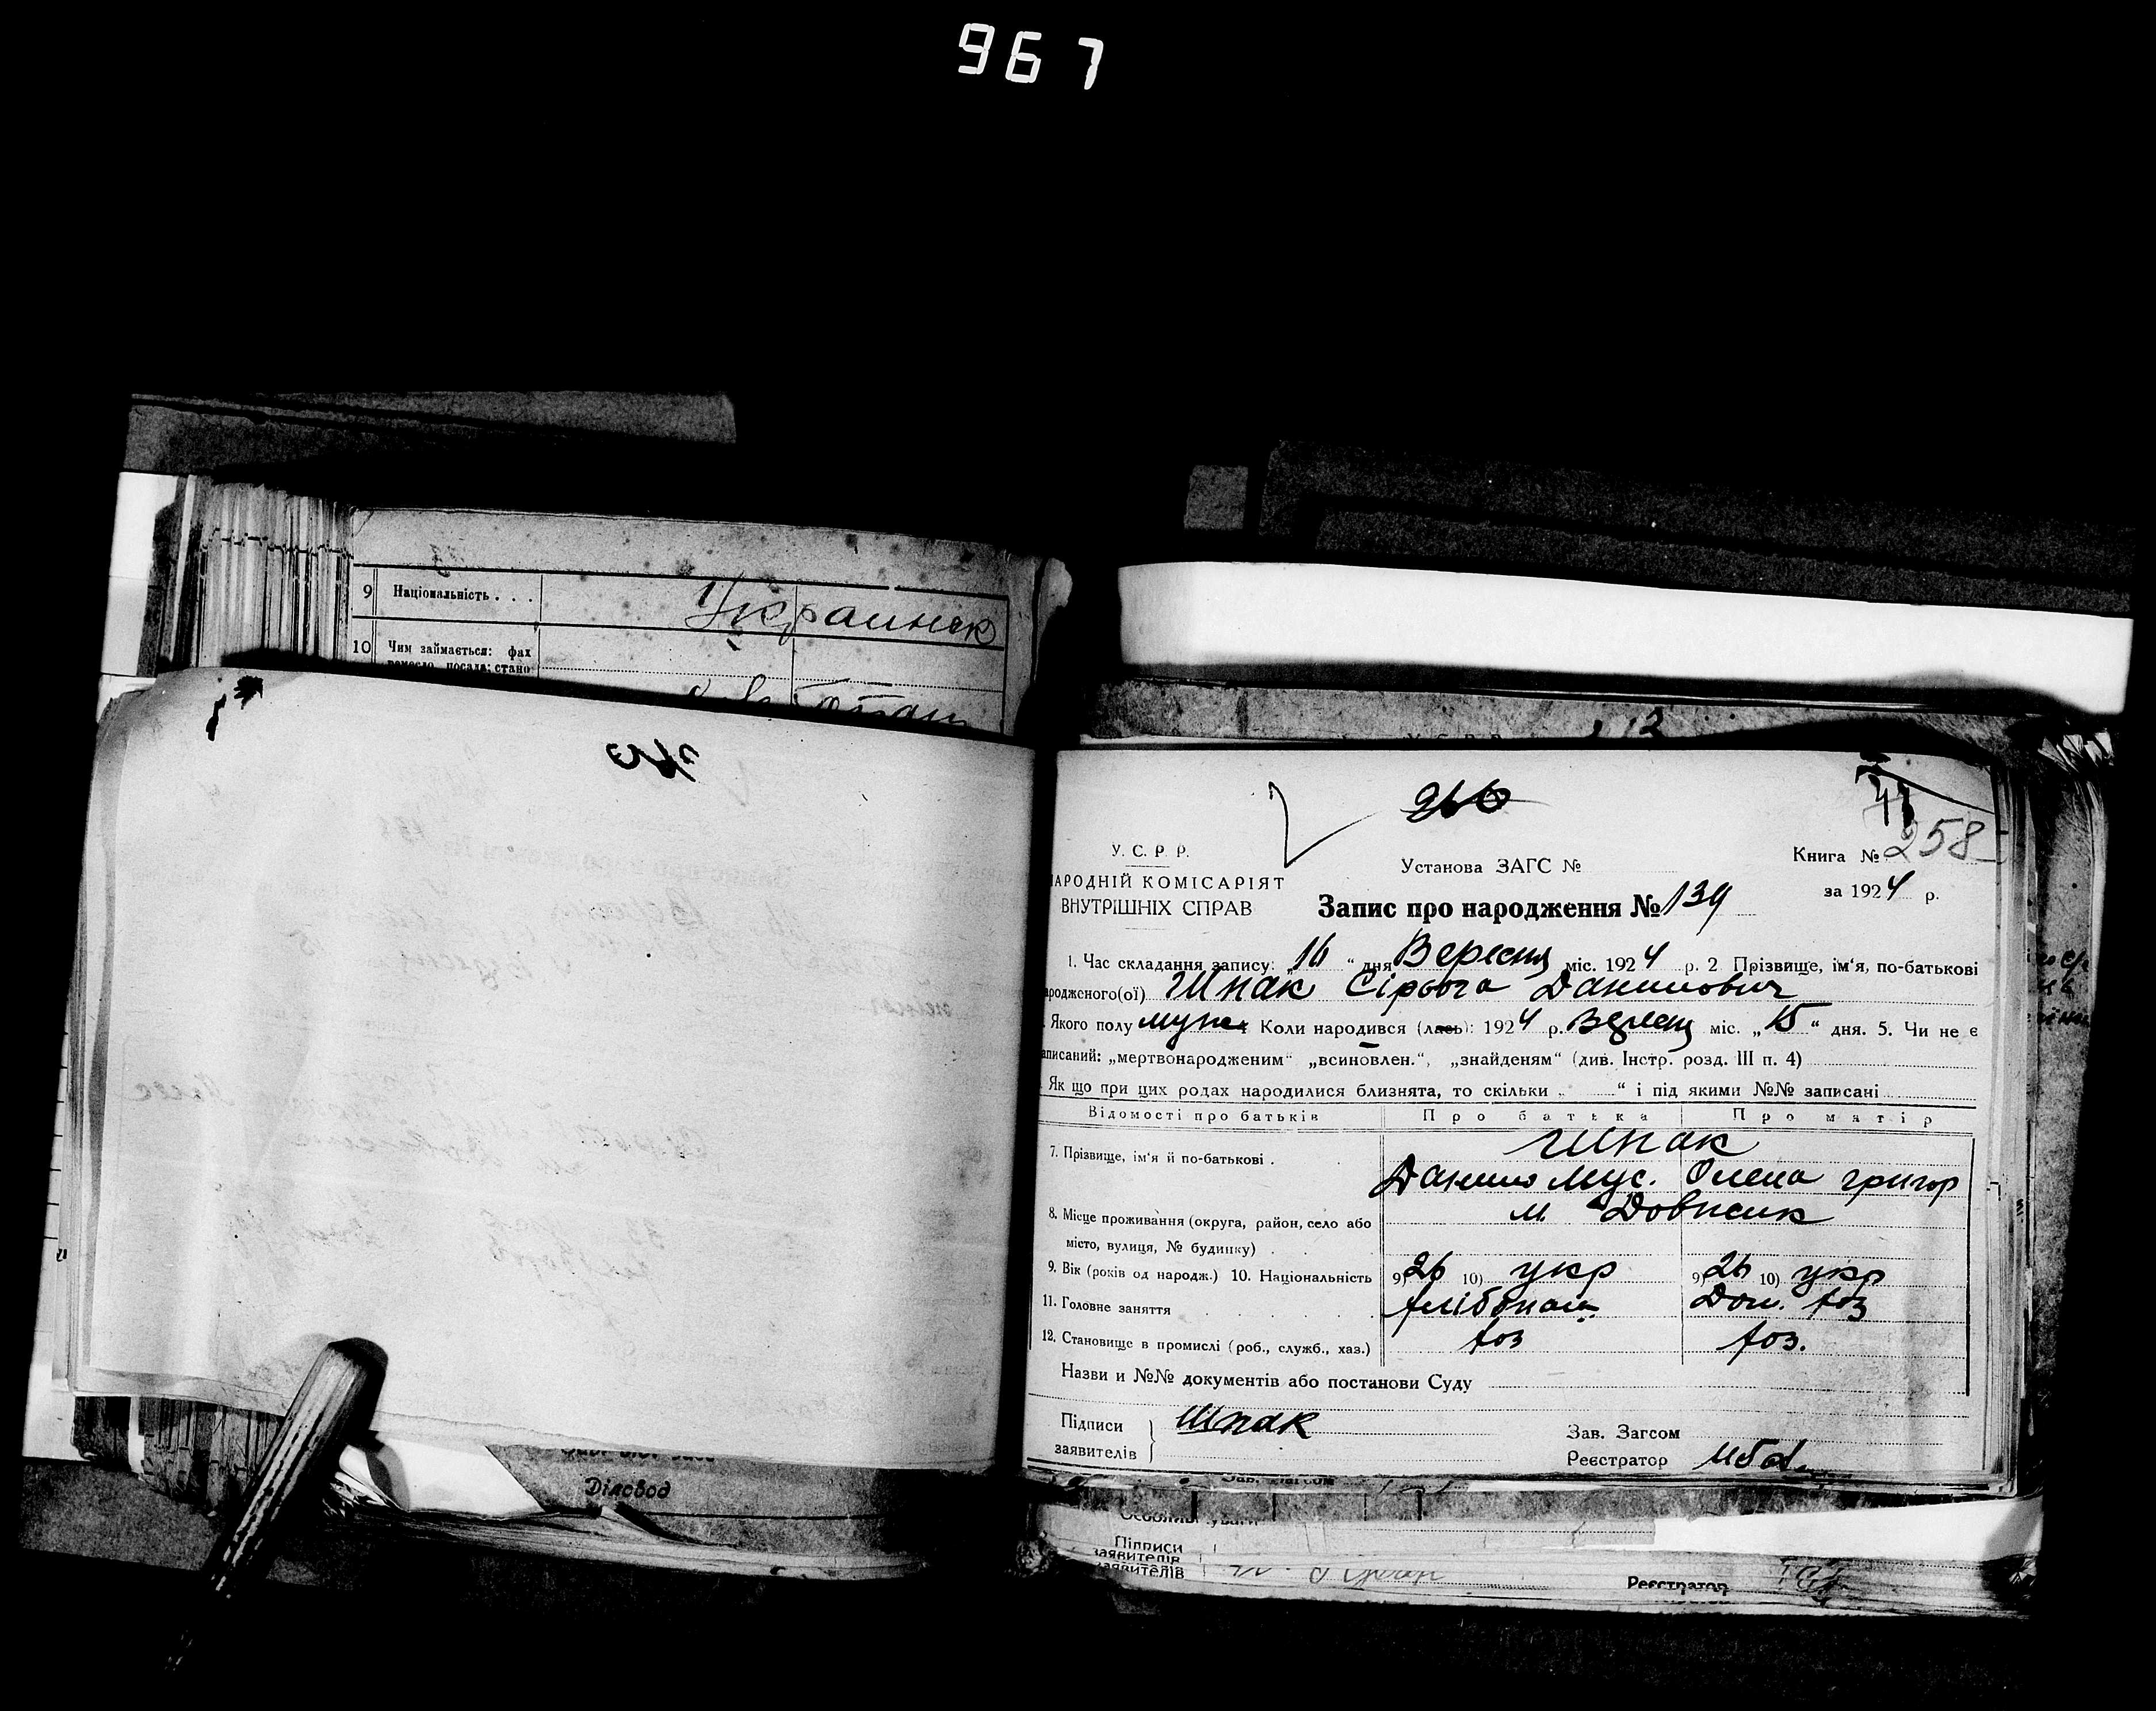 967
9 Національність . . . Украинск
10 Чим займається: фах
Діловод
266
41
258
У. С. Р. Р.
Установа ЗАГС №
Книга №
АРОДНІЙ КОМІСАРІЯТ
за 1924 р.
ВНУТРІШНІХ СПРАВ
Запис про народження № 139
1. Час складання запису: „16“ дня Вересня міс. 1924 р. 2 Прізвище, ім'я, по-батькові
ародженого(ої) Шпак Сірьога Данилович
Якого полу муж. 4 Коли народився (лась): 1924 р. Вересня міс. „15“ дня. 5. Чи не є
аписаний: „мертвонародженим“ „всиновлен.“, „знайденям“ (див. Інстр. розд. III п. 4)
Як що при цих родах народилися близнята, то скільки „ “ і під якими №№ записані
Відомості про батьків Про батька Про матір
7. Прізвище, ім'я й по-батькові . Шпак
Данило Мус. Олена Григор
8. Місце проживання (округа, район, село або м. Довбиш
місто, вулиця, № будинку) .
9. Вік (років од народж.) 10. Національність 9) 26 10) укр 9) 26 10) укр
11. Головне заняття хлібопаш Дом. хоз
12. Становище в промислі (роб., служб., хаз.) хоз хоз.
Назви и №№ документів або постанови Суду
Підписи Шпак
заявителів
Зав. Загсом
Реєстратор
Підписи
заявителів
Реєстратор